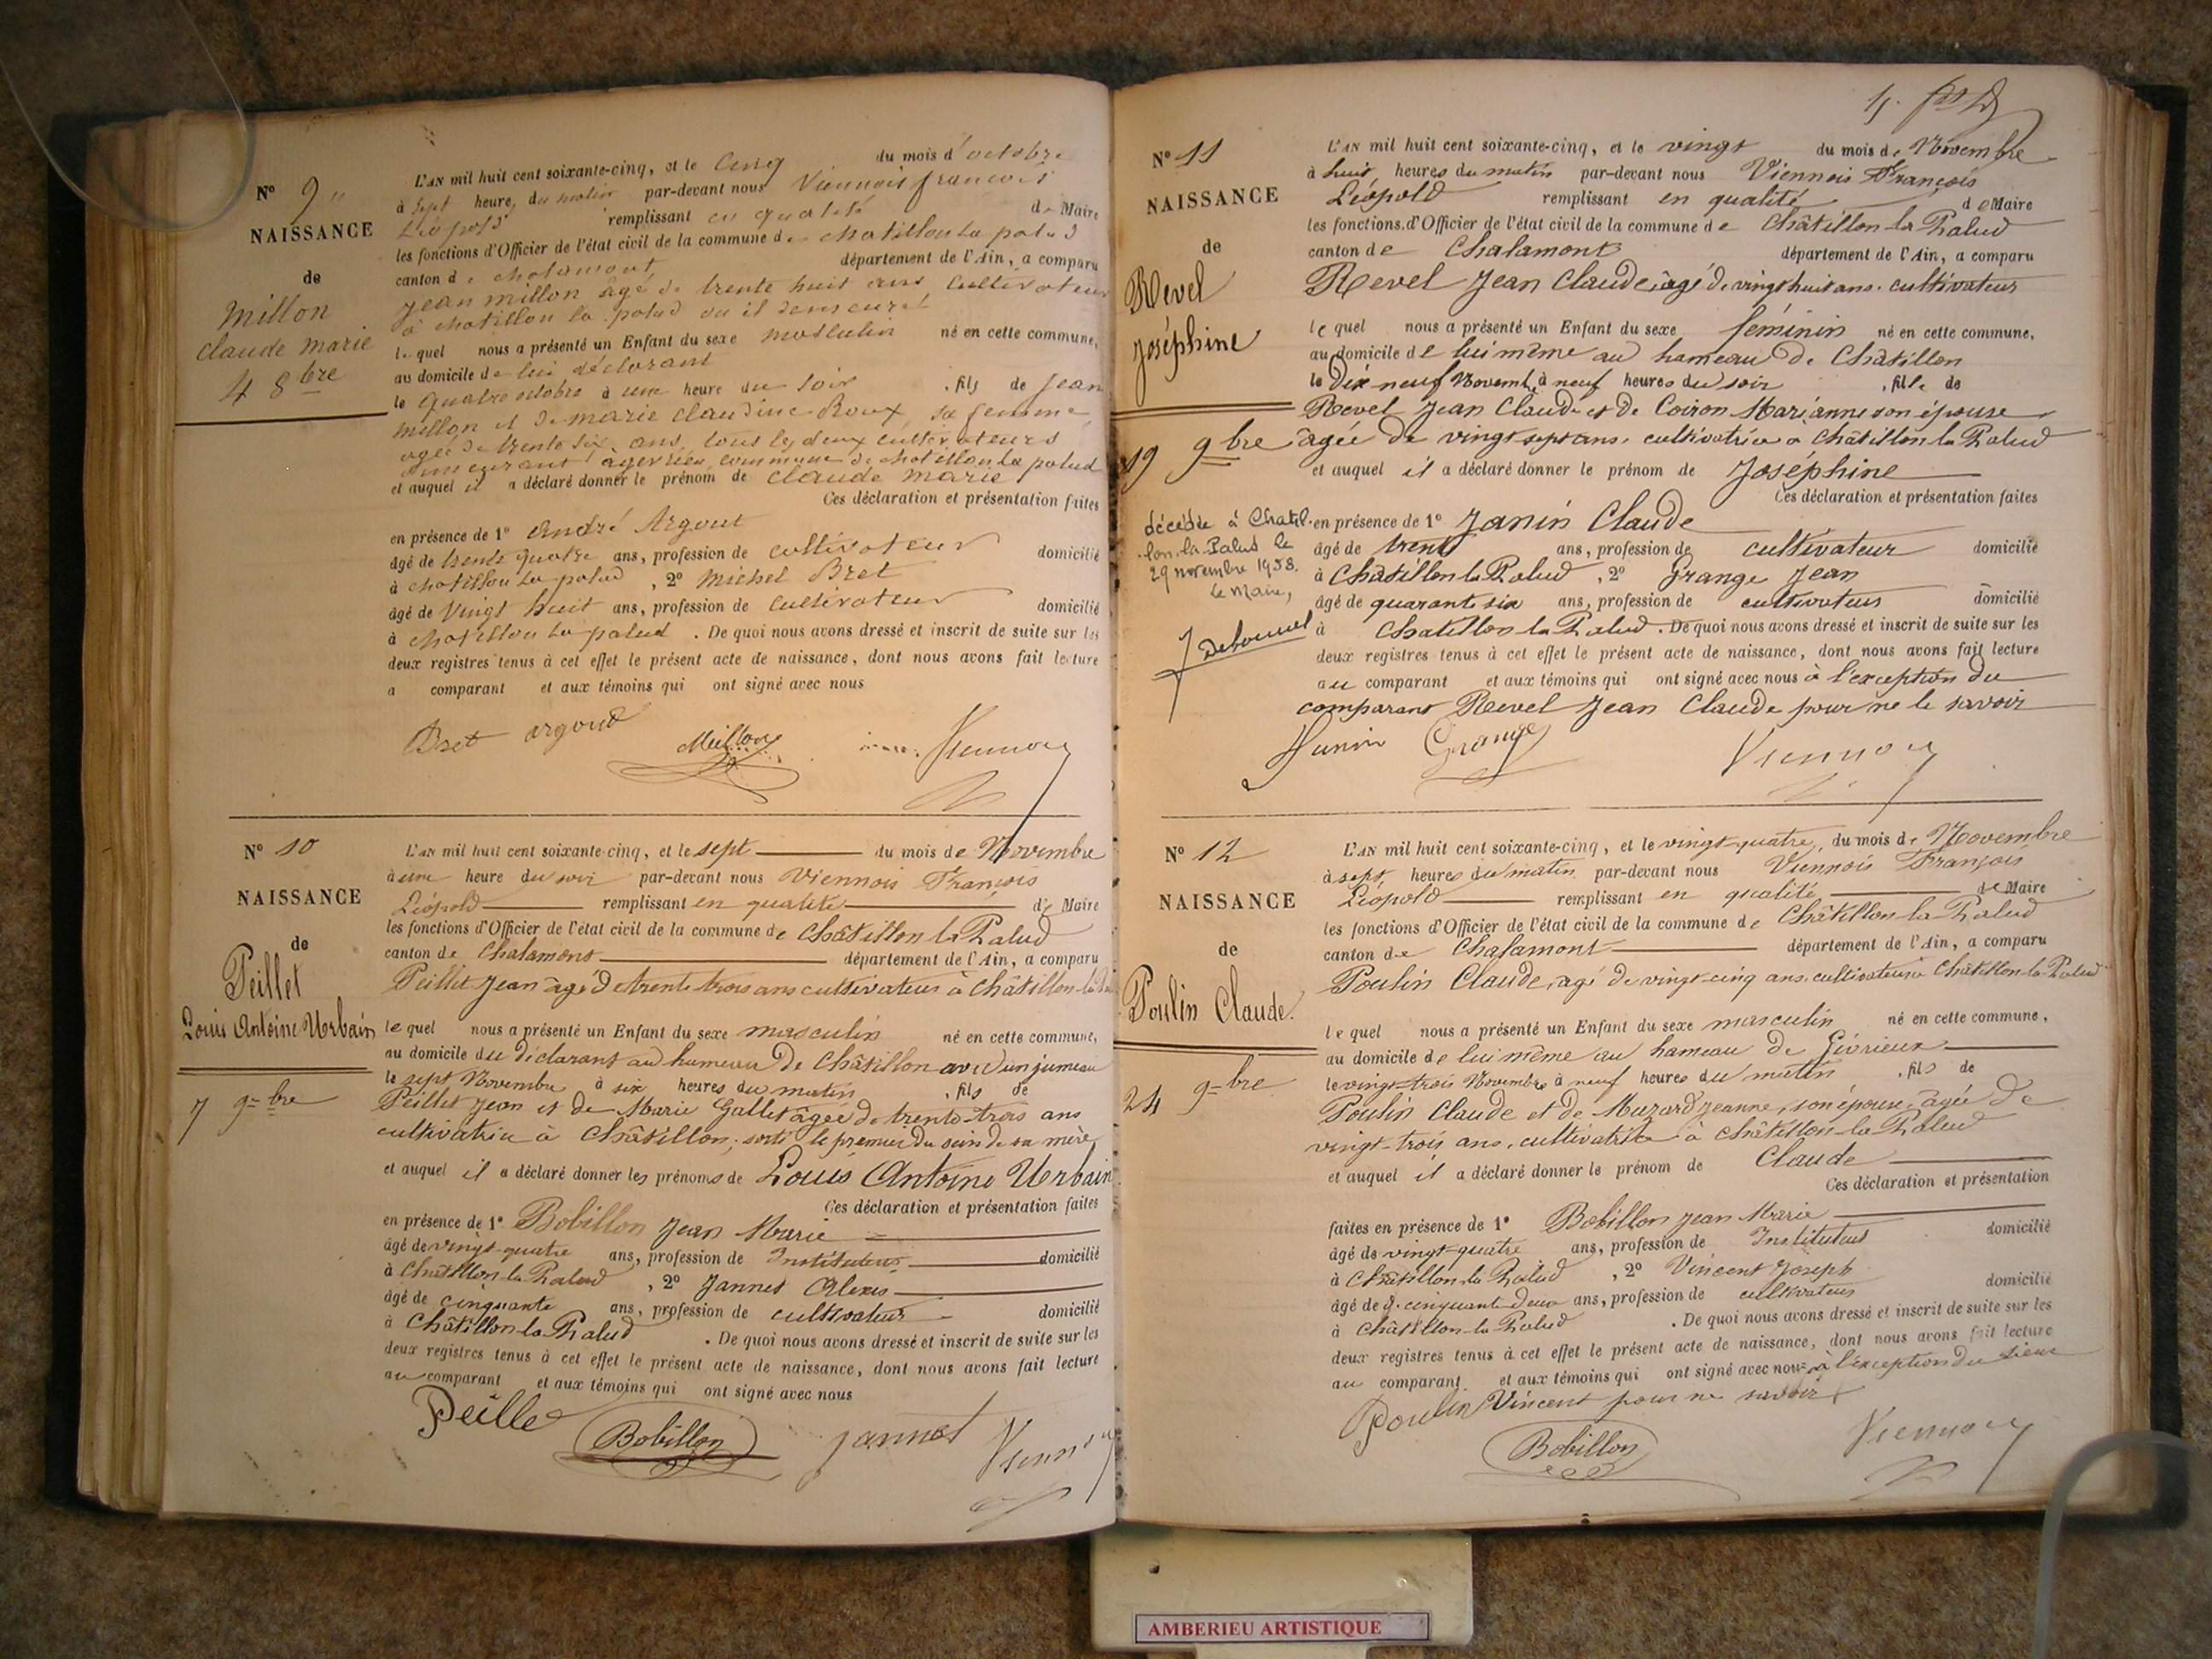 N° 9
NAISSANCE
de
Millon
Claude Marie
4 8bre
L'AN mil huit cent soixante-cinq, et le Cinq du mois d'octobre
à Sept heures du matin par-devant nous Viennois françois
Léopold remplissant en qualité de Maire
les fonctions d'Officier de l'état civil de la commune de chatillon la palud
canton de chalamont département de l'Ain, a comparu
jean millon âgé de trente huit ans, Cultivateur
à chatillon la palud ou il demeurat
lequel nous a présenté un Enfant du sexe masculin né en cette commune,
au domicile de lui déclarant
le quatre octobre à une heure du soir, fils de jean
millon et de marie claudine Roux sa femme
agée de trente six ans, tous les deux cultivateurs
demeurant à commune de chatillon la palud
et auquel il a déclaré donner le prénom de claude marie
Ces déclaration et présentation faites
en présence de 1° andré Argout
âgé de trente quatre ans, profession de cultivateur domicilié
à chatillon la palud, 2° michel Bret
âgé de vingt huit ans, profession de cultivateur domicilié
à chatillon la palud. De quoi nous avons dressé et inscrit de suite sur les
deux registres tenus à cet effet le présent acte de naissance, dont nous avons fait lecture
a comparant et aux témoins qui ont signé avec nous
Bret argoud Millon Viennois
N° 10
NAISSANCE
de
Peillet
Louis Antoine Urbain
7 9bre
L'AN mil huit cent soixante-cinq, et le sept du mois de Novembre
à une heure du soir par-devant nous Viennois François
Léopold remplissant en qualité de Maire
les fonctions d'Officier de l'état civil de la commune de Châtillon la Palud
canton de Chalamont département de l'Ain, a comparu
Peillet Jean âgé de trente trois ans cultivateur à Châtillon la
lequel nous a présenté un Enfant du sexe masculin né en cette commune,
au domicile du déclarant au hameau de Châtillon avec un jumeau
le sept Novembre à six heures du matin, fils de
Peillet Jean et de Marie Gallet âgée de trente-trois ans
cultivatrice à Châtillon; sorti le premier du sein de sa mère
et auquel il a déclaré donner les prénoms de Louis Antoine Urbain
Ces déclaration et présentation faites
en présence de 1° Bobillon Jean Marie
âgé de vingt-quatre ans, profession de Instituteur domicilié
à Châtillon la Palud, 2° Jannet Alexis
âgé de cinquante ans, profession de cultivateur domicilié
à Châtillon la Palud. De quoi nous avons dressé et inscrit de suite sur les
deux registres tenus à cet effet le présent acte de naissance, dont nous avons fait lecture
au comparant et aux témoins qui ont signé avec nous
Peillet Bobillon jannet Viennois
N° 11
NAISSANCE
de
Revel
Joséphine
19 9bre
décédée à Chatil-
lon la Palud le
29 novembre 1953.
Le Maire,
L'AN mil huit cent soixante-cinq, et le vingt du mois de Novembre
à huit heures du matin par-devant nous Viennois François
Léopold remplissant en qualité de Maire
les fonctions d'Officier de l'état civil de la commune de Châtillon la Palud
canton de Chalamont département de l'Ain, a comparu
Revel Jean Claude, âgé de vingt huit ans, cultivateur
lequel nous a présenté un Enfant du sexe féminin né en cette commune,
au domicile de lui même au hameau de Châtillon
le Dix neuf Novemb. à neuf heures du soir, fille de
Revel Jean Claude et de Coiron Marianne son épouse
âgée de vingt sept ans, cultivatrice à Châtillon la Palud
et auquel il a déclaré donner le prénom de Joséphine
Ces déclaration et présentation faites
en présence de 1° Janin Claude
âgé de trente ans, profession de cultivateur domicilié
à Châtillon la Palud, 2° Grange Jean
âgé de quarante six ans, profession de cultivateur domicilié
à Chatillon la Palud. De quoi nous avons dressé et inscrit de suite sur les
deux registres tenus à cet effet le présent acte de naissance, dont nous avons fait lecture
au comparant et aux témoins qui ont signé avec nous à l'exception du
comparant Revel Jean Claude pour ne le savoir
Grange Viennois
N° 12
NAISSANCE
de
Poulin Claude.
24 9bre
L'AN mil huit cent soixante-cinq, et le vingt-quatre, du mois de Novembre
à sept heures du matin par-devant nous Viennois François
Léopold remplissant en qualité de Maire
les fonctions d'Officier de l'état civil de la commune de Châtillon la Palud
canton de Chalamont département de l'Ain, a comparu
Poulin Claude, agé de vingt-cinq ans, cultivateur à Châtillon la Palud
lequel nous a présenté un Enfant du sexe masculin né en cette commune,
au domicile de lui même au hameau de Gévrieux
le vingt-trois Novembre à neuf heures du matin, fils de
Poulin Claude et de Muzard Jeanne, son épouse, agée de
vingt-trois ans, cultivatrice à Châtillon la Palud
et auquel il a déclaré donner le prénom de Claude
Ces déclaration et présentation
faites en présence de 1° Bobillon Jean Marie
âgé de vingt-quatre ans, profession de Instituteur domicilié
à Châtillon la Palud, 2° Vincent Joseph
âgé de cinquante deux ans, profession de cultivateur domicilié
à Châtillon la Palud. De quoi nous avons dressé et inscrit de suite sur les
deux registres tenus à cet effet le présent acte de naissance, dont nous avons fait lecture
au comparant et aux témoins qui ont signé avec nous à l'exception du sieur
Vincent pour ne savoir
Poulin Bobillon Viennois
AMBERIEU ARTISTIQUE